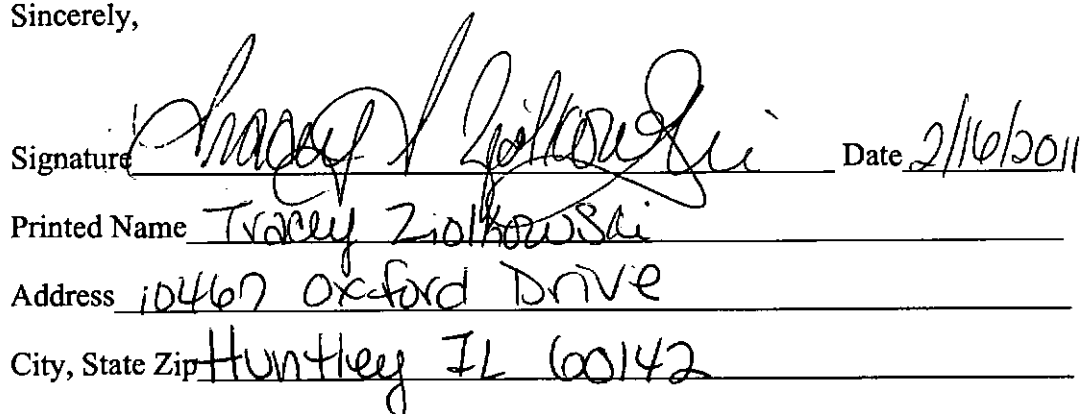 Sincerely,
Signature Tracey S Ziolkowski Date 2/16/2011
Printed Name Tracey Ziolkowski
Address 10467 Oxford Drive
City, State Zip Huntley IL 60142